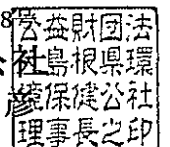 8号
公益財団法
社島根県環
彦
境保健公社
理事長之印